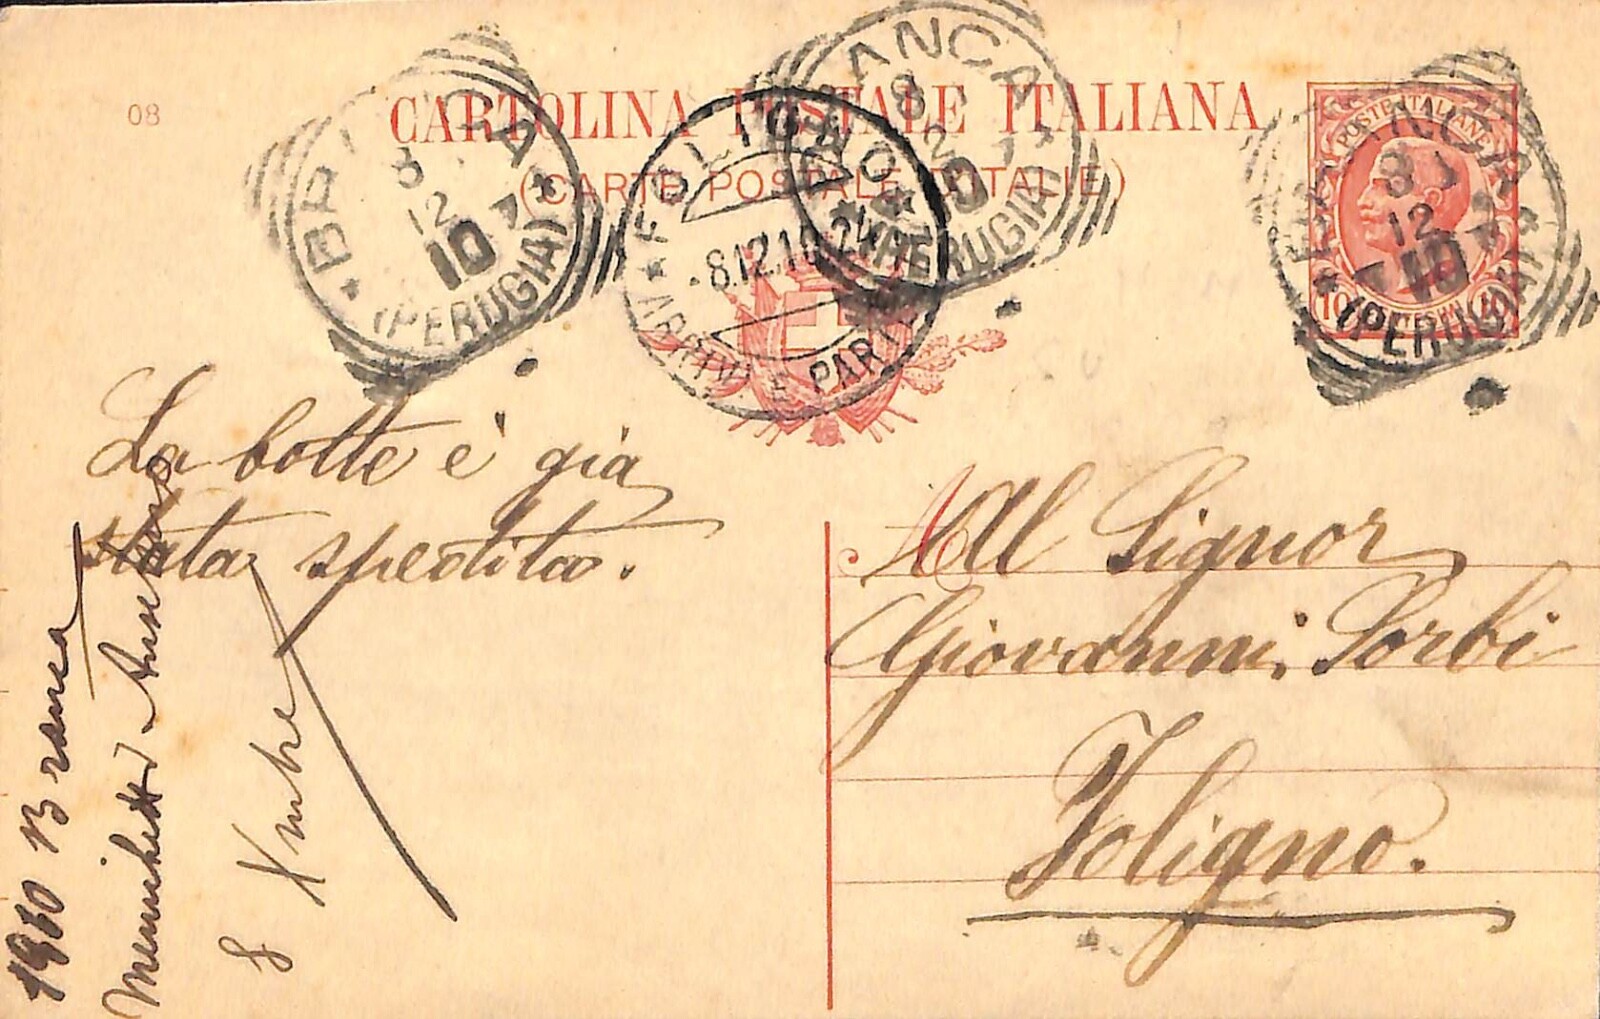 08
CARTOLINA POSTALE ITALIANA
(CARTE POSTALE D'ITALIE)
POSTE ITALIANE
10 CENTESIMI 10
BRANCA
8 12 10
(PERUGIA)
FOLIGNO
8.12.10
ARRIVI E PARTENZE
BRANCA
8 12 10
(PERUGIA)
BRANCA
8 12 10
(PERUGIA)
La botte è già
stata spedita.
Al Signor
Giovanni Sorbi
Foligno.
1910 Branca
Menichetti
8 Xmbre